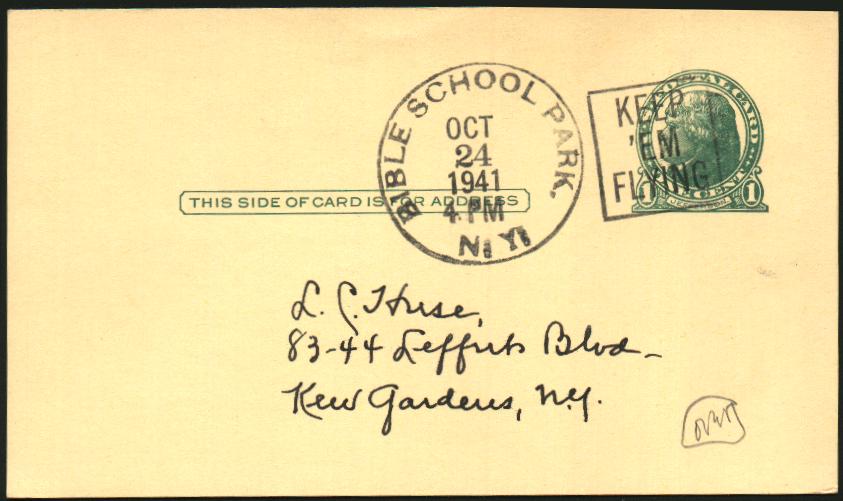 BIBLE SCHOOL PARK,
OCT
24
1941
4 PM
N.Y.
KEEP
'EM
FLYING!
POSTAL CARD
1 1
JEFFERSON
THIS SIDE OF CARD IS FOR ADDRESS
83-44 Lefferts Blvd-
Kew Gardens, N.Y.